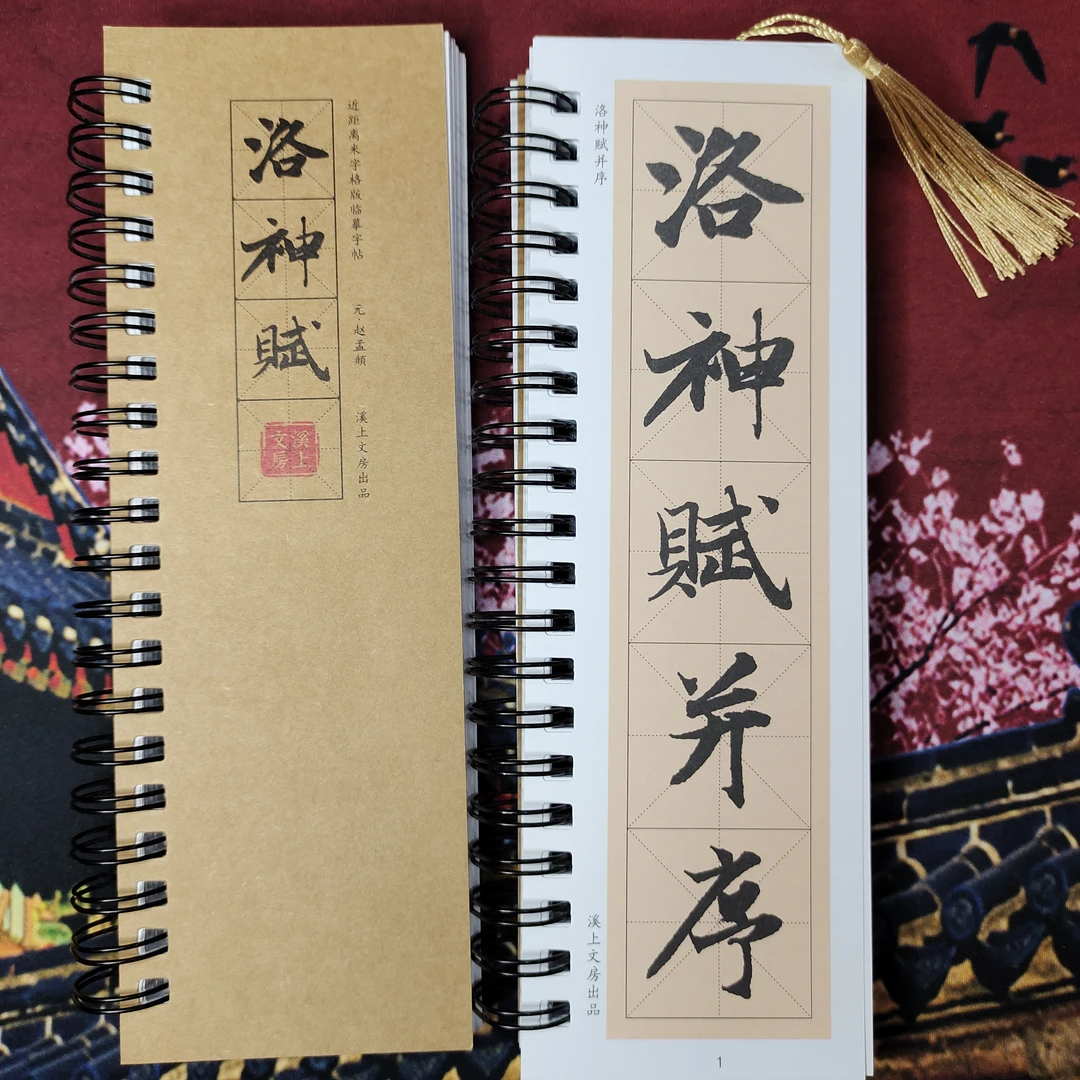 洛神賦
近距离米字格版临摹字帖 元·赵孟頫 溪上文房出品
溪上文房
洛神賦并序
洛神賦并序
溪上文房出品
1